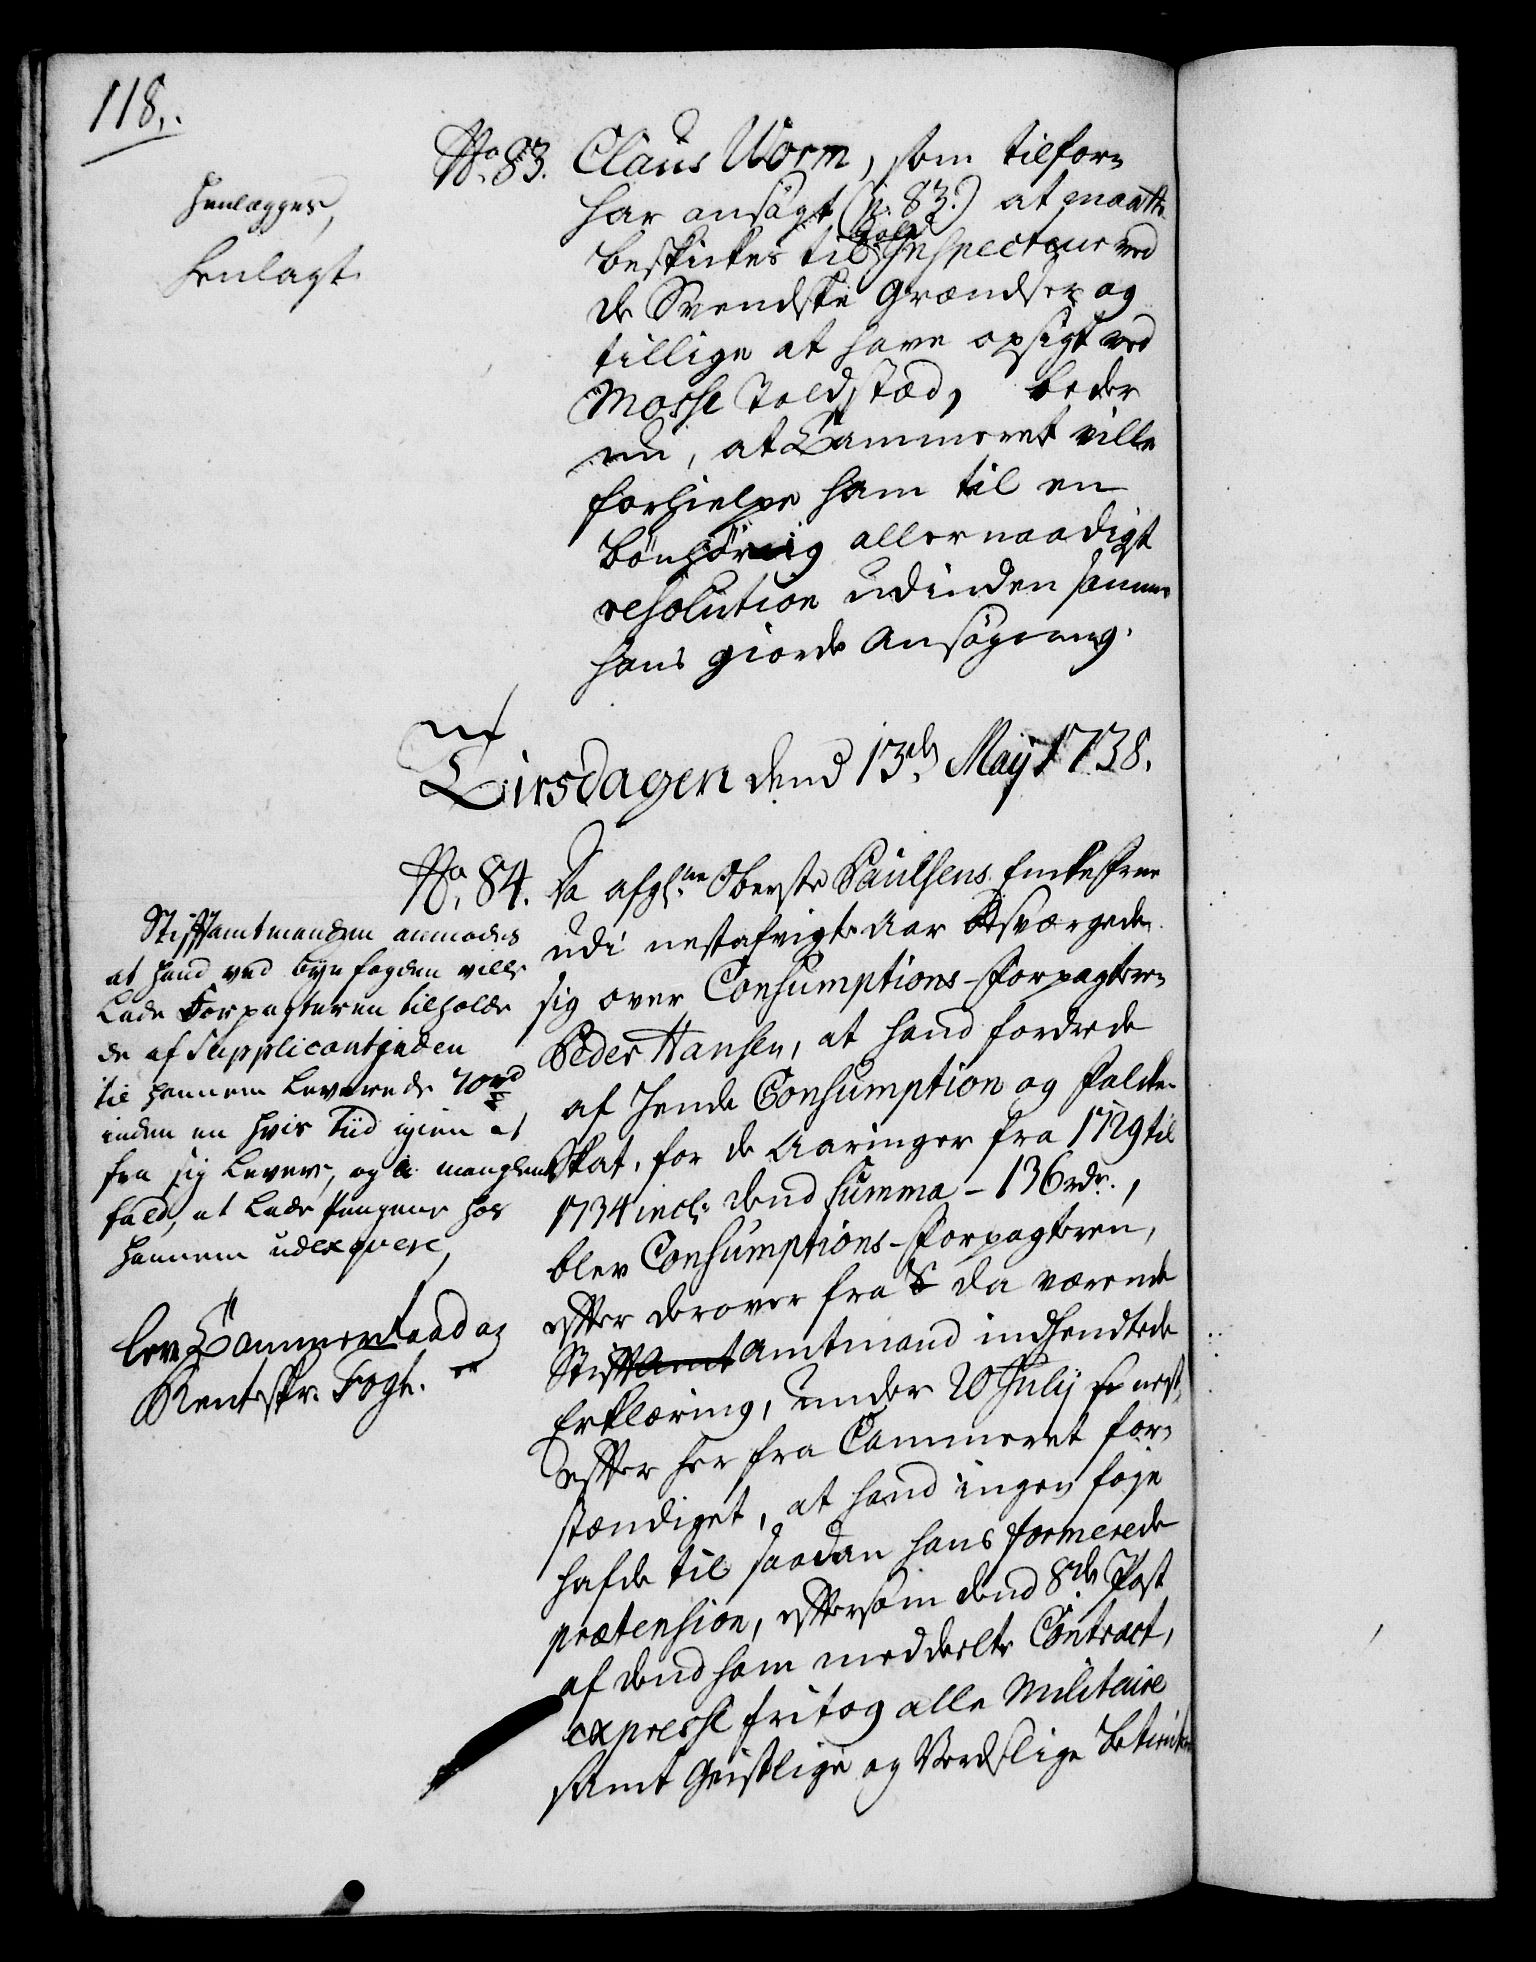 118.
No. 83. Claus Worm, som tilforn
har ansögt (p. 83.) at maatte
beskikes til Told Inspecteur ved
de Svendske Grændser og
tillige at have opsigt ved
Mosse Toldsted, beder
nu, at Cammeret ville
forhielpe ham til en
bönhörlig allernaadigst
resolution udinden samme
hans giorde Ansögning.
Henlægges,
henlagt.
Tirsdagen dend 13de Maij 1738.
No. 84. Da afgl. Oberste Paulsens Enkefrue
udi nestafvigte Aar besværgede
sig over Consumptions-Forpagteren
Peder Hansen, at hand fordrede
af hende Consumption og Folke-
Skat, for de Aaringer fra 1729 til
1734 incl: dend Summa - 136 rdr.,
blev Consumptions-Forpagteren,
efter derover fra da værende
Stiftamtmand indhendtede
Erklæring, under 20 Julij nest
efter her fra Cammeret for-
stændiget, at hand ingen föje
hafde til saadan hans formerede
prætension, eftersom dend 8de Post
af dend ham meddeelte Contract,
expresse fritog alle Militaire
samt Geistlige og Verdslige betiente
Stiftamtmanden anmodes
at hand ved byefogden ville
Lade Forpagteren tilholde
de af Supplicantinden
til hannem Leverede 70 rd
inden en hvis Tiid igien at
fra sig Levere, og i manglende
fald, at Lade Pengene hos
hannem udexqvere,
lev. Cammerraad og
Rentskr. Fogh.